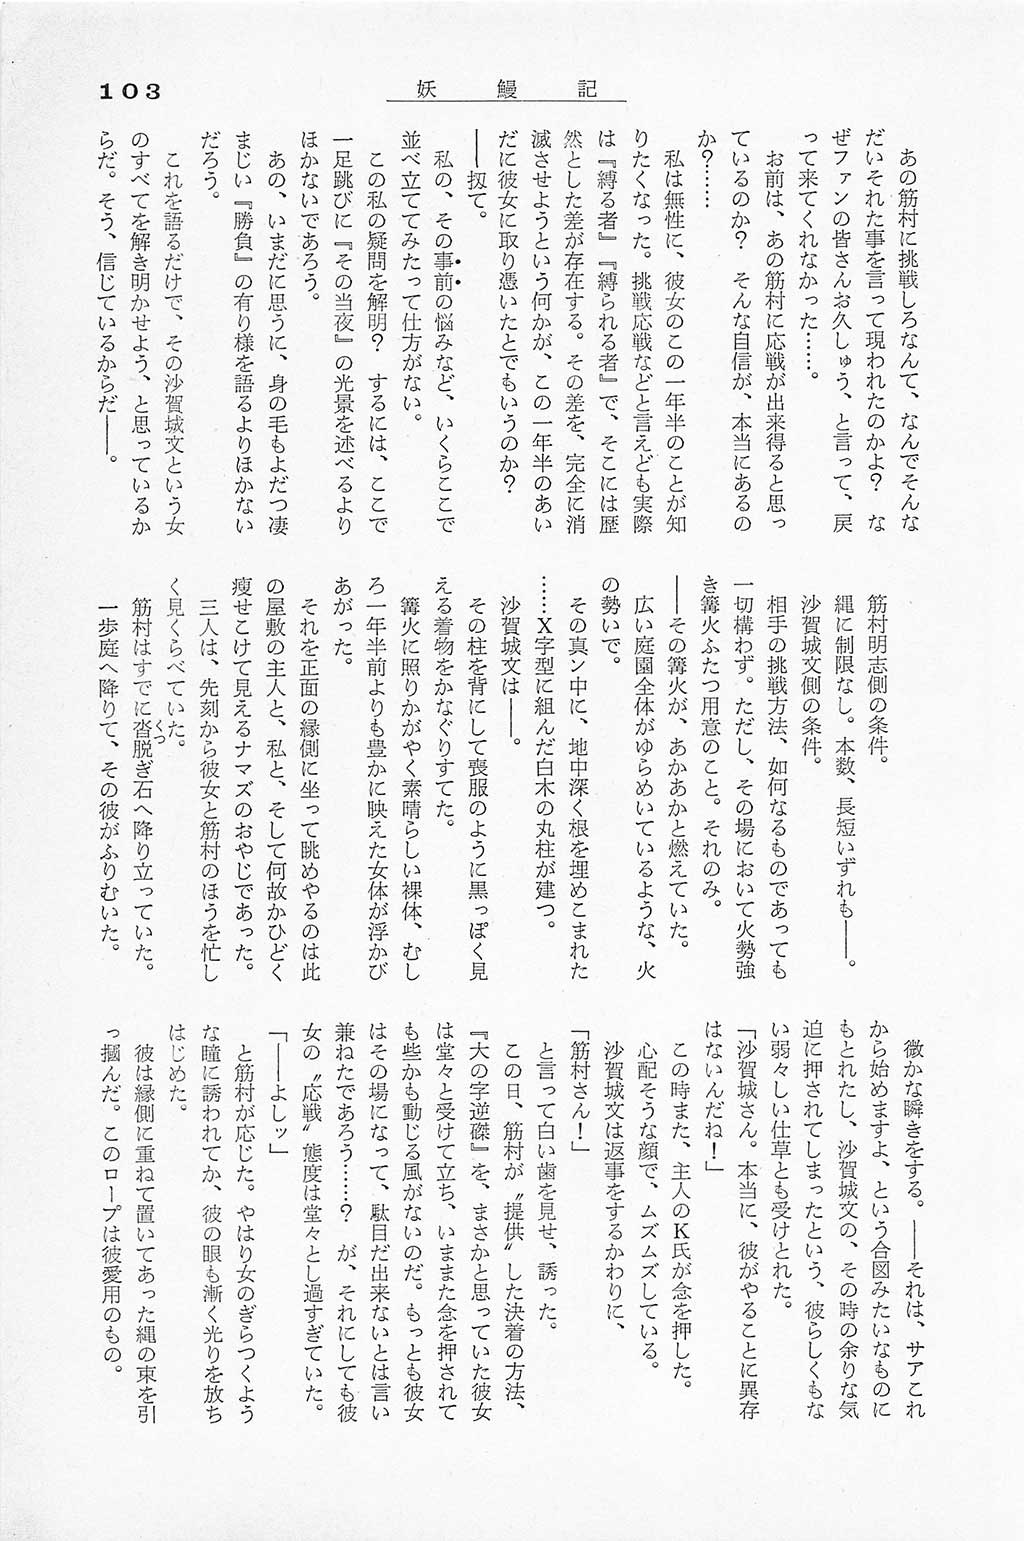 103
妖鰻記
あの筋村に挑戦しろなんて、なんでそんな
だいそれた事を言って現われたのかよ？　な
ぜファンの皆さんお久しゅう、と言って、戻
って来てくれなかった……。
お前は、あの筋村に応戦が出来得ると思っ
ているのか？　そんな自信が、本当にあるの
か？……
私は無性に、彼女のこの一年半のことが知
りたくなった。挑戦応戦などと言えども実際
は『縛る者』『縛られる者』で、そこには歴
然とした差が存在する。その差を、完全に消
滅させようという何かが、この一年半のあい
だに彼女に取り憑いたとでもいうのか？
――扨て。
私の、その事前の悩みなど、いくらここで
並べ立ててみたって仕方がない。
この私の疑問を解明？　するには、ここで
一足跳びに『その当夜』の光景を述べるより
ほかないであろう。
あの、いまだに思うに、身の毛もよだつ凄
まじい『勝負』の有り様を語るよりほかない
だろう。
これを語るだけで、その沙賀城文という女
のすべてを解き明かせよう、と思っているか
らだ。そう、信じているからだ――。
筋村明志側の条件。
縄に制限なし。本数、長短いずれも――。
沙賀城文側の条件。
相手の挑戦方法、如何なるものであっても
一切構わず。ただし、その場において火勢強
き篝火ふたつ用意のこと。それのみ。
――その篝火が、あかあかと燃えていた。
広い庭園全体がゆらめいているような、火
の勢いで。
その真ン中に、地中深く根を埋めこまれた
……Ｘ字型に組んだ白木の丸柱が建つ。
沙賀城文は――。
その柱を背にして喪服のように黒っぽく見
える着物をかなぐりすてた。
篝火に照りかがやく素晴らしい裸体、むし
ろ一年半前よりも豊かに映えた女体が浮かび
あがった。
それを正面の縁側に坐って眺めやるのは此
の屋敷の主人と、私と、そして何故かひどく
痩せこけて見えるナマズのおやじであった。
三人は、先刻から彼女と筋村のほうを忙し
く見くらべていた。
筋村はすでに沓脱ぎ石へ降り立っていた。
くつ
一歩庭へ降りて、その彼がふりむいた。
微かな瞬きをする。――それは、サアこれ
から始めますよ、という合図みたいなものに
もとれたし、沙賀城文の、その時の余りな気
迫に押されてしまったという、彼らしくもな
い弱々しい仕草とも受けとれた。
「沙賀城さん。本当に、彼がやることに異存
はないんだね！」
この時また、主人のＫ氏が念を押した。
心配そうな顔で、ムズムズしている。
沙賀城文は返事をするかわりに、
「筋村さん！」
と言って白い歯を見せ、誘った。
この日、筋村が〝提供〟した決着の方法、
『大の字逆磔』を、まさかと思っていた彼女
は堂々と受けて立ち、いままた念を押されて
も些かも動じる風がないのだ。もっとも彼女
はその場になって、駄目だ出来ないとは言い
兼ねたであろう……？　が、それにしても彼
女の〝応戦〟態度は堂々とし過ぎていた。
「――よしッ」
と筋村が応じた。やはり女のぎらつくよう
な瞳に誘われてか、彼の眼も漸く光りを放ち
はじめた。
彼は縁側に重ねて置いてあった縄の束を引
っ摑んだ。このロープは彼愛用のもの。